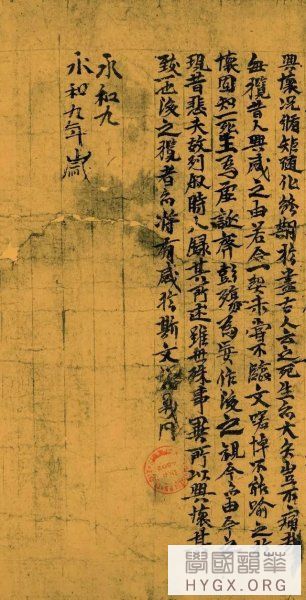 興懷況脩矩随化終期於盡古人云之死生亦大矣豈不痛哉
每攬昔人興感之由若合一契未嘗不臨文嗟悼不能喻之於
懷固知一死生為虛誕齊彭殤為妄作後之視今亦由今之
視昔悲夫故列敘時人錄其所述雖世殊事異所以興懷其
致一也後之攬者亦將有感於斯文
永和九
永和九年歲
學國韻華
HYGX.ORG